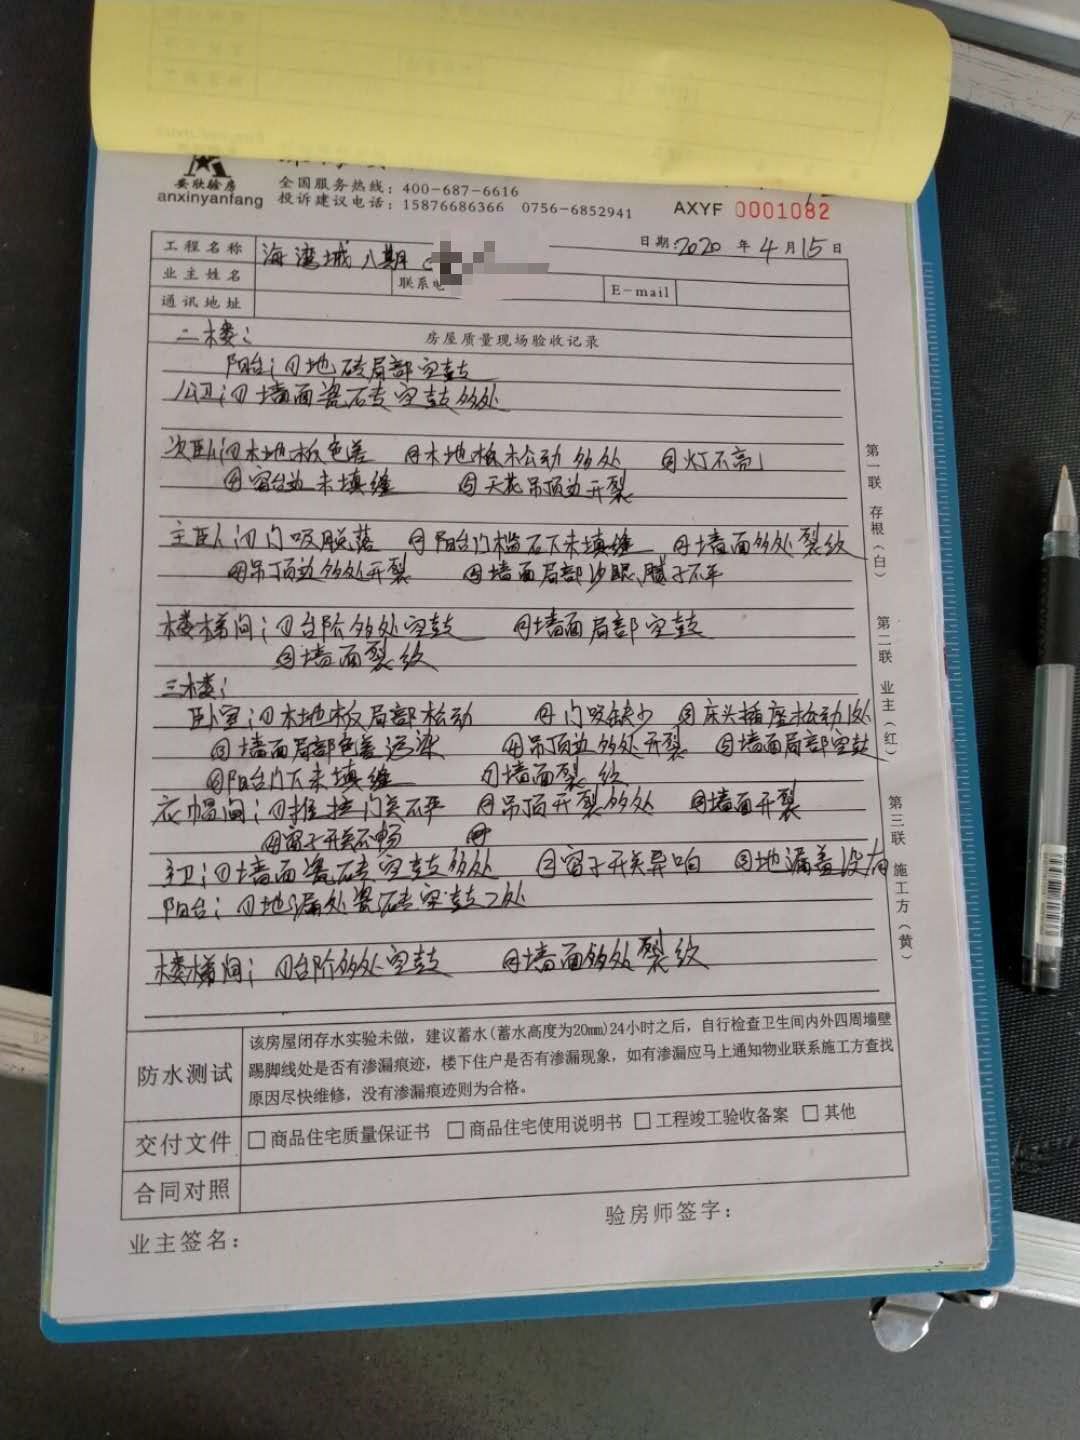 安欣验房
anxinyanfang
全国服务热线：400-687-6616
投诉建议电话：15876686366 0756-6852941
AXYF 0001082
日期：2020 年 4 月 15 日
工程名称 海湾城八期
业主姓名 联系电 E-mail
通讯地址
房屋质量现场验收记录
二楼：
阳台：①地砖局部空鼓
公卫：①墙面瓷砖空鼓多处
次卧：①木地板色差 ②木地板松动多处 ③灯不亮
④窗台边未填缝 ⑤天花吊顶边开裂
主卧：①门吸脱落 ②阳台门槛石下未填缝 ③墙面多处裂纹
④吊顶边多处开裂 ⑤墙面局部沙眼,腻子不平
楼梯间：①台阶多处空鼓 ②墙面局部空鼓
③墙面裂纹
三楼：
卧室：①木地板局部松动 ②门吸缺少 ③床头插座松动1处
墙面局部色差污染 吊顶边多处开裂 墙面局部空鼓
阳台门下未填缝 墙面裂纹
衣帽间：①推拉门关不平 ②吊顶开裂多处 ③墙面开裂
④窗子开关不畅
主卫：①墙面瓷砖空鼓多处 ②窗子开关异响 ③地漏盖没有
阳台：①地漏处瓷砖空鼓2处
楼梯间：①台阶多处空鼓 ②墙面多处裂纹
防水测试
该房屋闭存水实验未做，建议蓄水(蓄水高度为20mm)24小时之后，自行检查卫生间内外四周墙壁
踢脚线处是否有渗漏痕迹，楼下住户是否有渗漏现象，如有渗漏应马上通知物业联系施工方查找
原因尽快维修，没有渗漏痕迹则为合格。
交付文件 □商品住宅质量保证书 □商品住宅使用说明书 □工程竣工验收备案 □其他
合同对照
业主签名： 验房师签字：
第一联 存根（白）
第二联 业主（红）
第三联 施工方（黄）